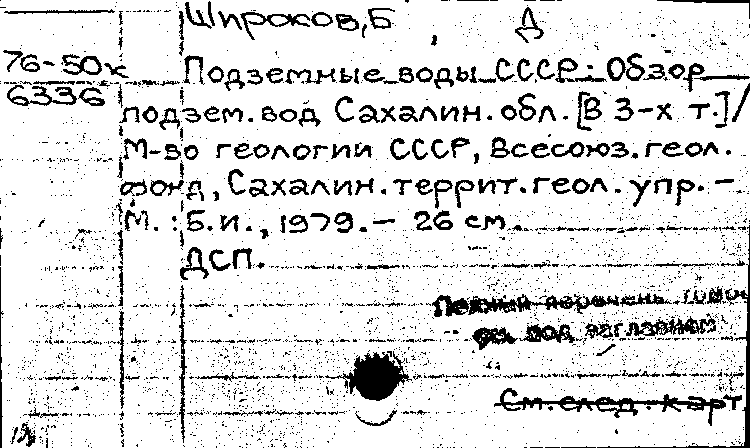 Широков, Б Д
76-50к
6336
Подземные воды СССР: Обзор
подзем. вод Сахалин. обл. [В 3-х т.]/
М-во геологии СССР, Всесоюз. геол.
фонд, Сахалин. террит. геол. упр. –
М. : Б. и., 1979. – 26 см.
ДСП.
Полный перечень томов
см. под заглавием
См. след. карт.